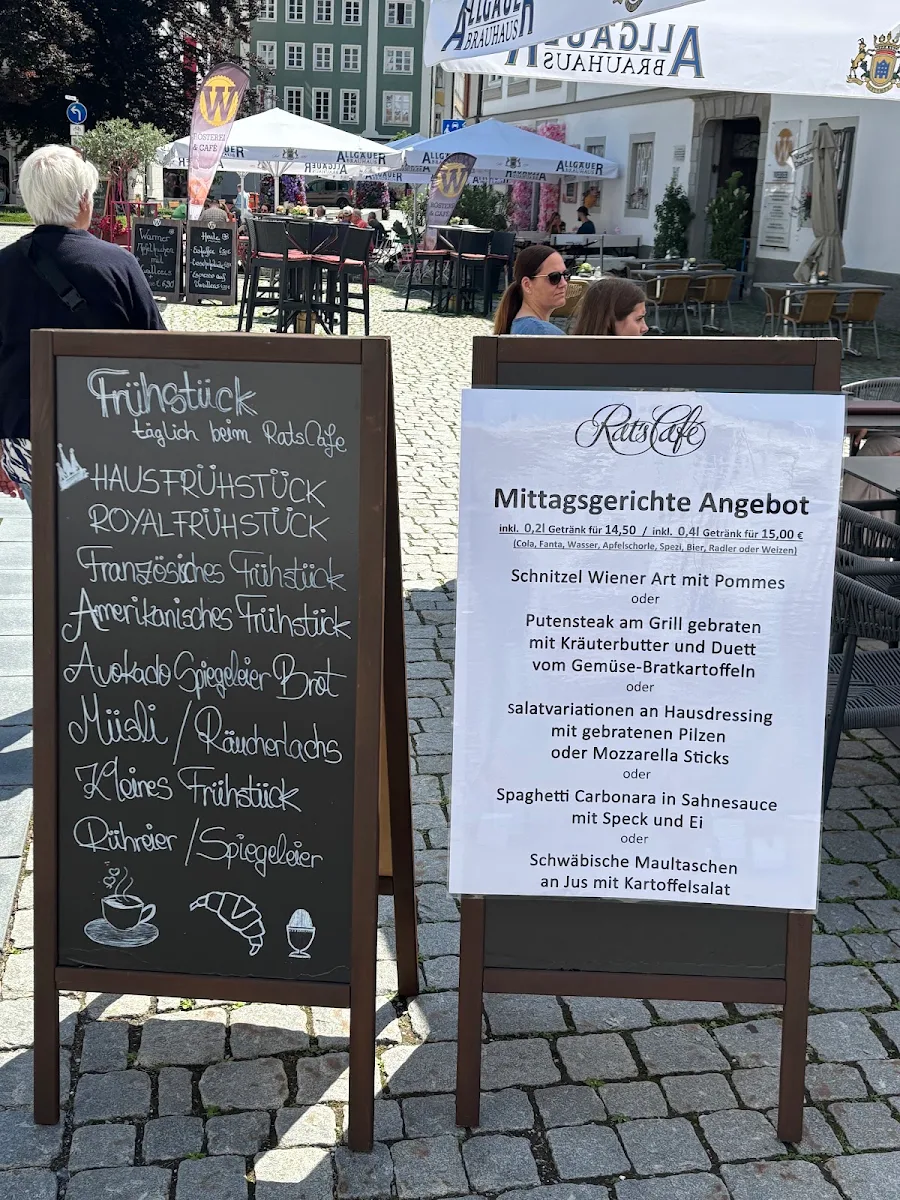 ALLGÄUER
BRAUHAUS
ALLGÄUER
BRAUHAUS
W
RÖSTEREI
& CAFÉ
ALLGÄUER
ALLGÄUER
W
Warmer
Apfelkuchen
mit
Heute
Frühstück
täglich beim RatsCafe
HAUSFRÜHSTÜCK
ROYALFRÜHSTÜCK
Französiches Frühstück
Amerikanisches Frühstück
Avokado Spiegeleier Brot
Müsli / Räucherlachs
Kleines Frühstück
Rühreier / Spiegeleier
RatsCafé
Mittagsgerichte Angebot
inkl. 0,2l Getränk für 14,50 / inkl. 0,4l Getränk für 15,00 €
(Cola, Fanta, Wasser, Apfelschorle, Spezi, Bier, Radler oder Weizen)
Schnitzel Wiener Art mit Pommes
oder
Putensteak am Grill gebraten
mit Kräuterbutter und Duett
vom Gemüse-Bratkartoffeln
oder
Salatvariationen an Hausdressing
mit gebratenen Pilzen
oder Mozzarella Sticks
oder
Spaghetti Carbonara in Sahnesauce
mit Speck und Ei
oder
Schwäbische Maultaschen
an Jus mit Kartoffelsalat